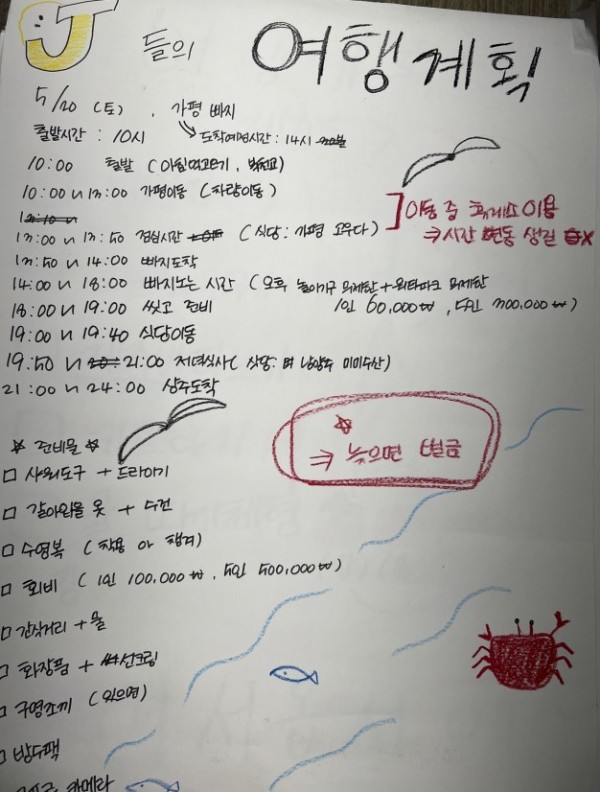 J들의 여행계획
5/20 (토), 가평 빠지
출발시간 : 10시 → 도착예정시간 : 14시
10:00 출발 (아침먹고오기, )
10:00 ~ 13:00 가평이동 (차량이동)
] 이동 중 휴게소 이용
⇒ 시간 변동 생길
13:00 ~ 13:50 점심시간 (식당: 가평 고우다)
13:50 ~ 14:00 빠지도착
14:00 ~ 18:00 빠지노는 시간 (오후 놀이기구 무제한 + 워터파크 무제한
1인 60,000₩, 5인 300,000₩)
18:00 ~ 19:00 씻고 준비
19:00 ~ 19:40 식당이동
19:50 ~ 21:00 저녁식사 (식당: 남양주 미미수산)
21:00 ~ 24:00 상주도착
☆ 준비물 ☆
☆
⇒ 늦으면 벌금
□ 샤워도구 + 드라이기
□ 갈아입을 옷 + 수건
□ 수영복 (착용 or 챙겨)
□ 회비 (1인 100,000₩, 5인 500,000₩)
□ 간식거리 + 물
□ 화장품 + 선크림
□ 구명조끼 (있으면)
□ 방수팩
카메라